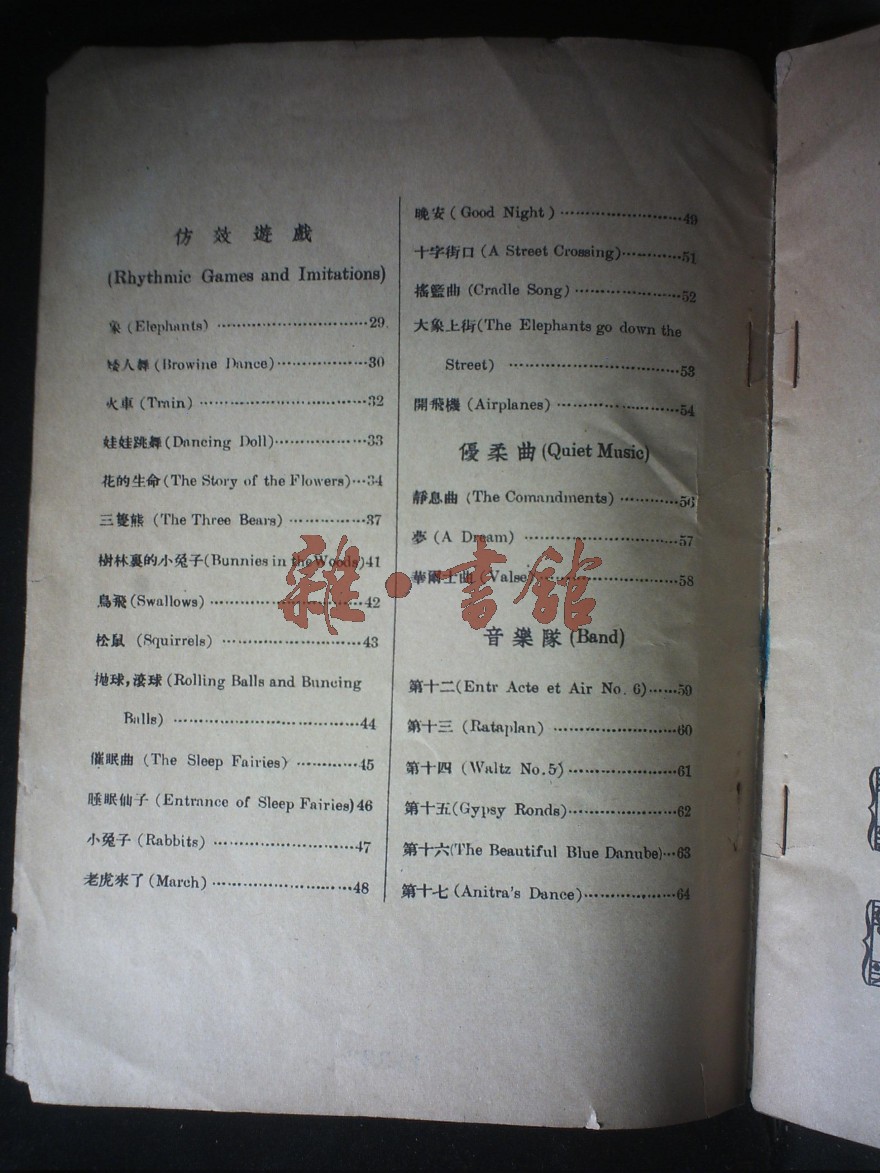 仿效遊戲
(Rhythmic Games and Imitations)
象 (Elephants) ································29
矮人舞 (Browine Dance)··················30
火車 (Train) ································32
娃娃跳舞 (Dancing Doll)··················33
花的生命 (The Story of the Flowers)···34
三隻熊 (The Three Bears) ···············37
樹林裏的小兔子 (Bunnies in the Woods) 41
鳥飛 (Swallows) ····························42
松鼠 (Squirrels) ····························43
抛球，滾球 (Rolling Balls and Buncing
Balls) ································44
催眠曲 (The Sleep Fairies) ············45
睡眠仙子 (Entrance of Sleep Fairies) 46
小兔子 (Rabbits) ··························47
老虎來了 (March) ··························48
晚安 (Good Night) ························49
十字街口 (A Street Crossing)············51
搖籃曲 (Cradle Song) ·····················52
大象上街 (The Elephants go down the
Street) ································53
開飛機 (Airplanes) ························54
優柔曲 (Quiet Music)
靜息曲 (The Comandments) ············56
夢 (A Dream) ································57
華爾士曲 (Valse)··························58
音樂隊 (Band)
第十二 (Entr Acte et Air No. 6)······59
第十三 (Rataplan) ························60
第十四 (Waltz No.5)·····················61
第十五 (Gypsy Ronds)·····················62
第十六 (The Beautiful Blue Danube)···63
第十七 (Anitra's Dance)··················64
雜·書舘